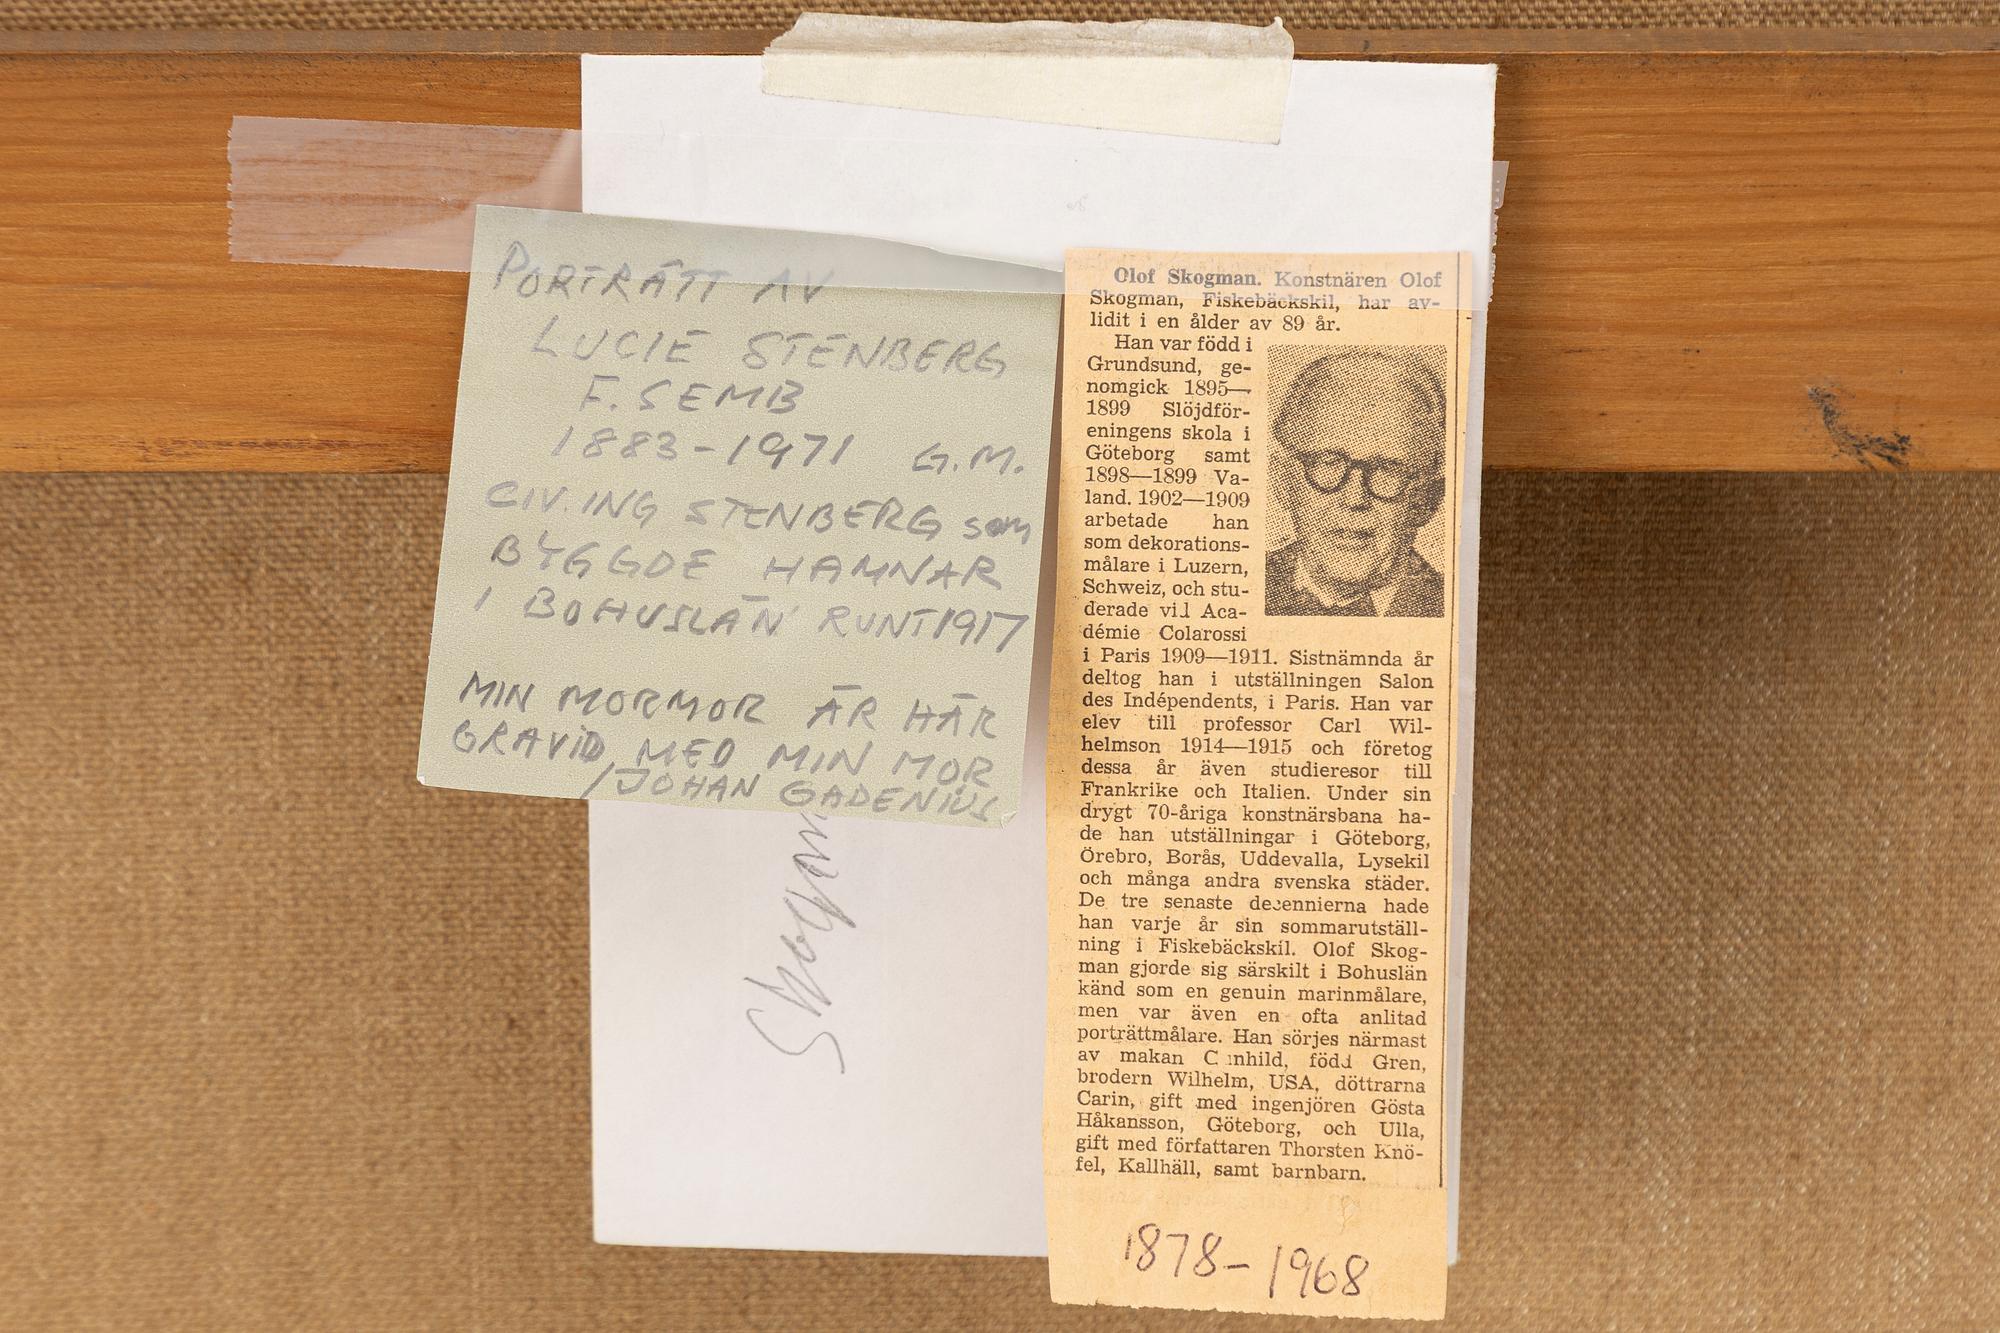 PORTRÄTT AV
LUCIE STENBERG
F. SEMB
1883-1971 G.M.
CIV.ING STENBERG som
BYGGDE HAMNAR
I BOHUSLÄN RUNT 1917
MIN MORMOR ÄR HÄR
GRAVID MED MIN MOR
/JOHAN GADENIUS
Skogman
Olof Skogman. Konstnären Olof
Skogman, Fiskebäckskil, har av-
lidit i en ålder av 89 år.
Han var född i
Grundsund, ge-
nomgick 1895—
1899 Slöjdför-
eningens skola i
Göteborg samt
1898—1899 Va-
land. 1902—1909
arbetade han
som dekorations-
målare i Luzern,
Schweiz, och stu-
derade vid Aca-
démie Colarossi
i Paris 1909—1911. Sistnämnda år
deltog han i utställningen Salon
des Indépendents, i Paris. Han var
elev till professor Carl Wil-
helmson 1914—1915 och företog
dessa år även studieresor till
Frankrike och Italien. Under sin
drygt 70-åriga konstnärsbana ha-
de han utställningar i Göteborg,
Örebro, Borås, Uddevalla, Lysekil
och många andra svenska städer.
De tre senaste decennierna hade
han varje år sin sommarutställ-
ning i Fiskebäckskil. Olof Skog-
man gjorde sig särskilt i Bohuslän
känd som en genuin marinmålare,
men var även en ofta anlitad
porträttmålare. Han sörjes närmast
av makan född Gren,
brodern Wilhelm, USA, döttrarna
Carin, gift med ingenjören Gösta
Håkansson, Göteborg, och Ulla,
gift med författaren Thorsten Knö-
fel, Kallhäll, samt barnbarn.
1878-1968